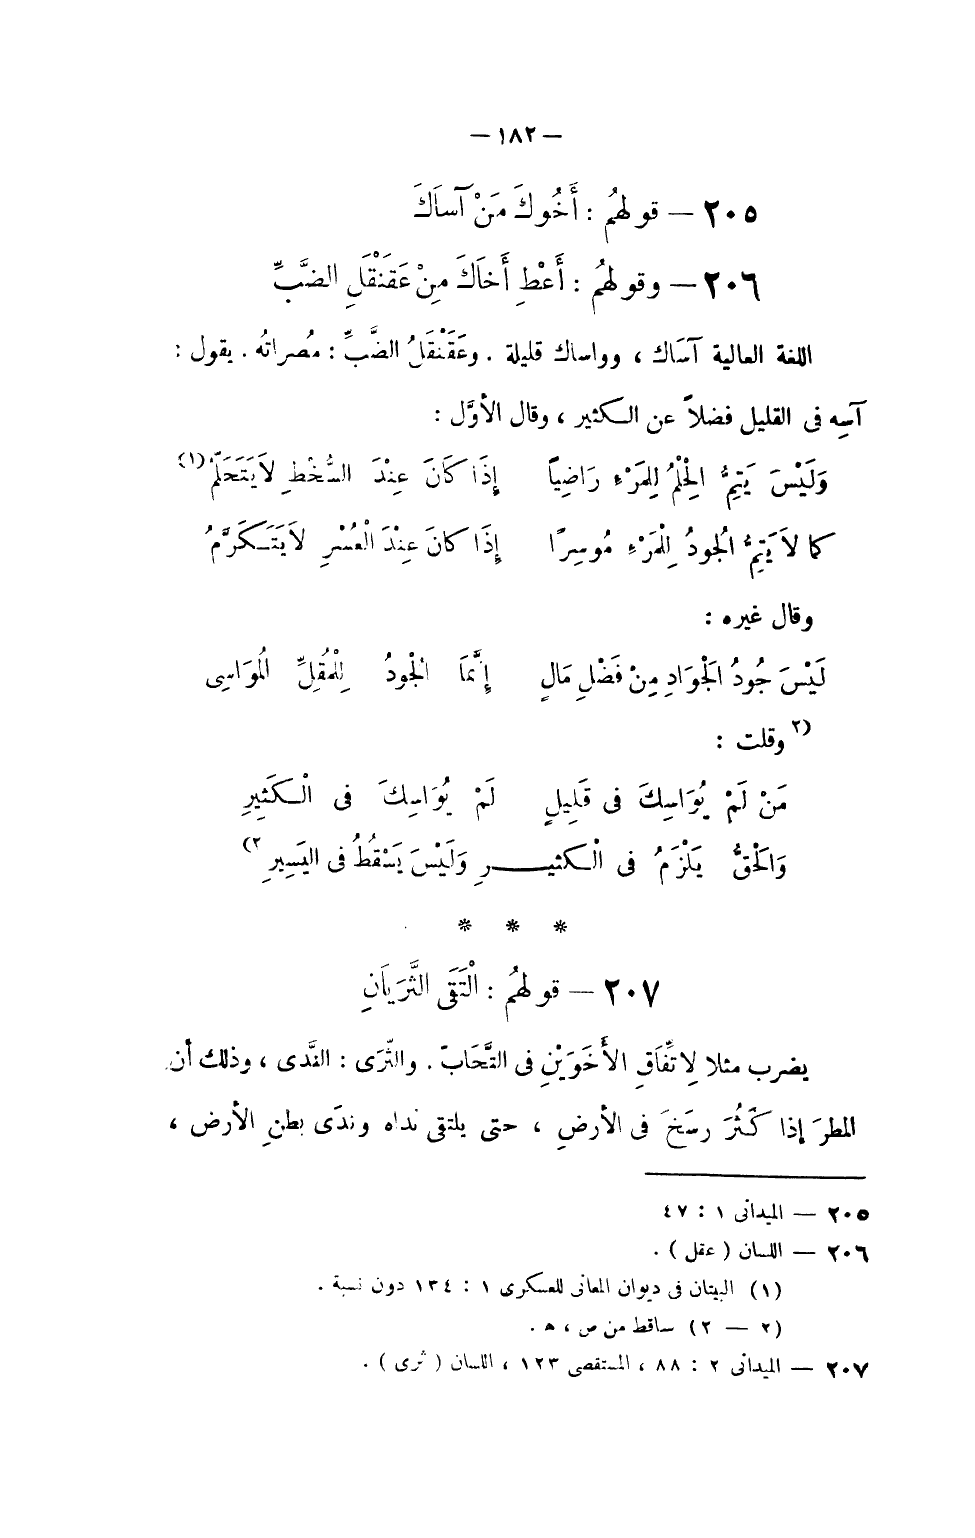 — ١٨٢ —
٢٠٥ — قولهُم : أَخُوكَ مَنْ آسَاكَ
٢٠٦ — وقولهُم : أَعْطِ أَخَاكَ مِنْ عَقَنْقَلِ الضَّبِّ
اللغة العالية آسَاك ، وواساك قليلة . وعَقَنْقَلُ الضَّبِّ : مُصرانُه . يقول :
آسِه فى القليل فضلاً عن الكثير ، وقال الأوَّل :
وَلَيْسَ يَتِمُّ الحِلْمُ لِلمَرْءِ رَاضِيًا إِذَا كَانَ عِنْدَ السُّخْطِ لاَ يَتَحَلَّمُ (١)
كما لاَ يَتِمُّ الجُودُ لِلْمَرْءِ مُوسِرًا إِذَا كانَ عِنْدَ الْعُسْرِ لاَ يَتَكَرَّمُ
وقال غيره :
لَيْسَ جُودُ الجَوَادِ مِنْ فَضْلِ مَالٍ إِنَّمَا الْجُودُ لِلْمُقِلِّ المُوَاسِى
(٢ وقلت :
مَنْ لَمْ يُوَاسِكَ فى قَلِيلٍ لَمْ يُوَاسِكَ فى الْكَثِيرِ
وَالْحَقُّ يَلْزَمُ فى الْكثيــــرِ وَلَيْسَ يَسْقُطُ فى اليَسِيرِ ٢)
* * *
٢٠٧ — قولهُم : الْتَقَى الثَّرَيَانِ
يضرب مثلا لِاتِّفَاقِ الأَخَوَيْنِ فى التَّحَابّ . والثّرَى : النَّدى ، وذلك أن
المطرَ إذا كَثُرَ رسَخَ فى الأرضِ ، حتى يلتقى نداه وندَى بطنِ الأرض ،
٢٠٥ — الميدانى ١ : ٤٧
٢٠٦ — اللسان ( عقل ) .
(١) البيتان فى ديوان المعانى للعسكرى ١ : ١٣٤ دون نسبة .
(٢ — ٢) ساقط من ص ، ھ .
٢٠٧ — الميدانى ٢ : ٨٨ ، المستقصى ١٢٣ ، اللسان ( ثرى ) .